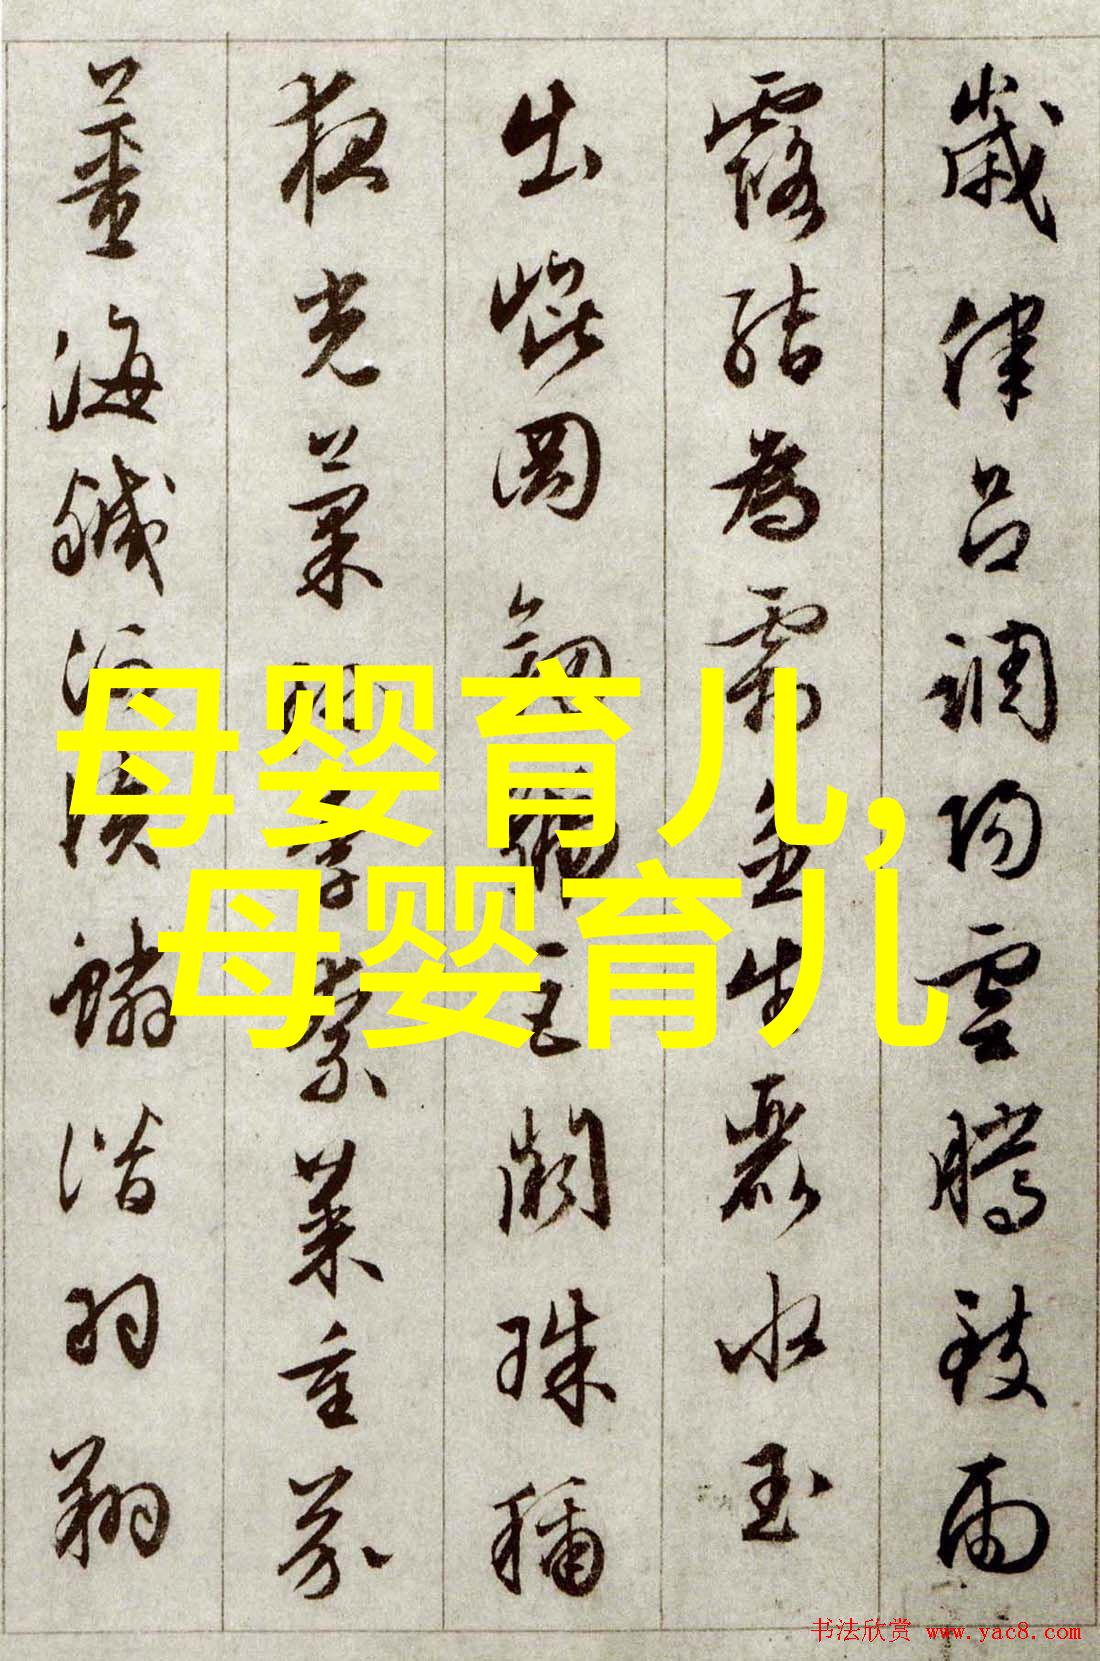 歲律呂調陽雲騰致雨
露結為霜金生麗水玉
出崐岡劍號巨闕珠稱
夜光菓珍李柰菜重芥
薑海鹹河淡鱗潛羽翔
母婴育儿,
母婴育儿
书法欣赏 www.yac8.com